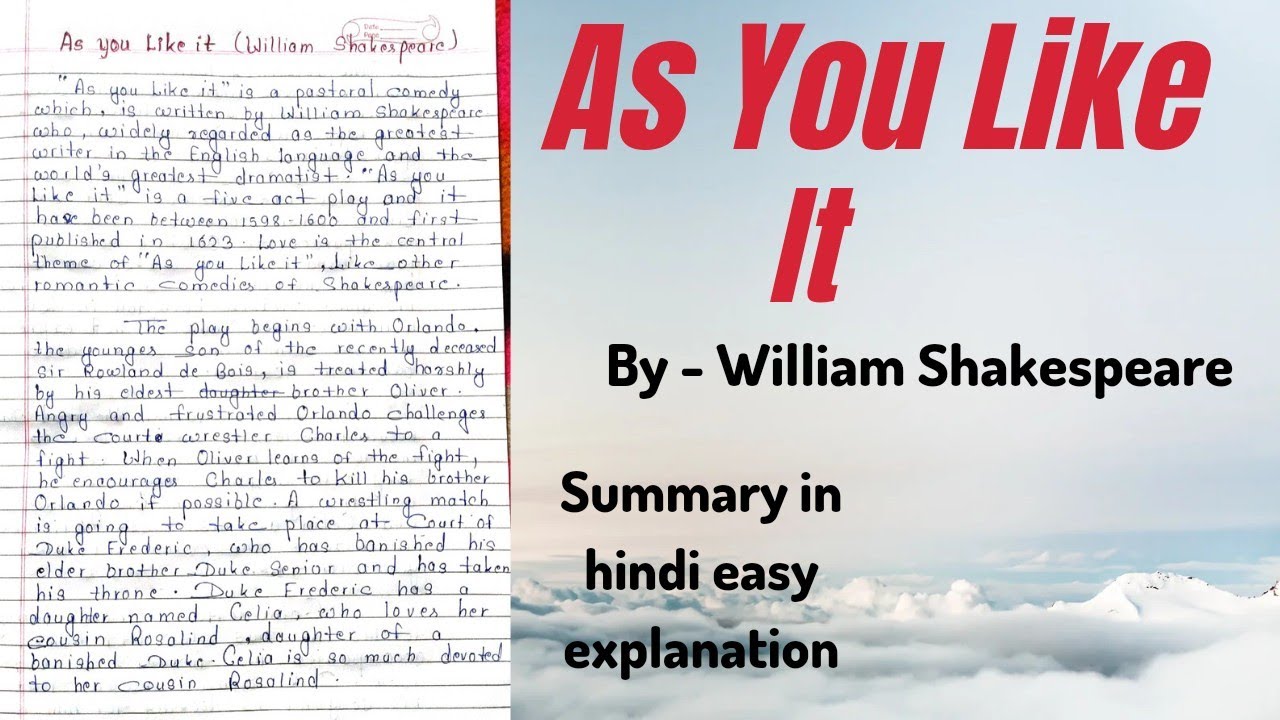 Date
Page
As you Like it (William Shakespeare)
"As you Like it" is a pastoral comedy
which, is written by William Shakespeare
who, widely regarded as the greatest
writer in the English language and the
world's greatest dramatist. "As you
Like it" is a five act play and it
have been between 1598-1600 and first
published in 1623. Love is the central
theme of "As you Like it", Like other
romantic comedies of Shakespeare.
The play begins with Orlando,
the younges son of the recently deceased
Sir Rowland de Bois, is treated harshly
by his eldest daughter brother Oliver.
Angry and frustrated Orlando challenges
the court wrestler Charles to a
fight. When Oliver learns of the fight,
he encourages Charles to kill his brother
Orlando if possible. A wrestling match
is going to take place at Court of
Duke Frederic, who has banished his
elder brother Duke Senior and has taken
his throne. Duke Frederic has a
daughter named, Celia, who loves her
cousin Rosalind, daughter of a
banished Duke. Celia is so much devoted
to her cousin Rosalind.
As You Like
It
By - William Shakespeare
Summary in
hindi easy
explanation